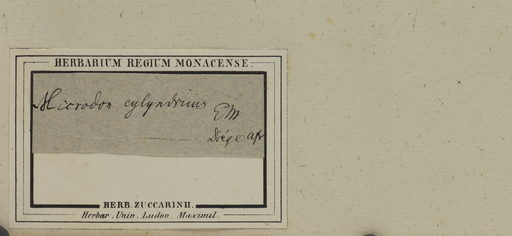 HERBARIUM REGIUM MONACENSE
Microdon cylyndricus EM
Drége afr
HERB. ZUCCARINII.
Herbar. Univ. Ludov. Maximil.